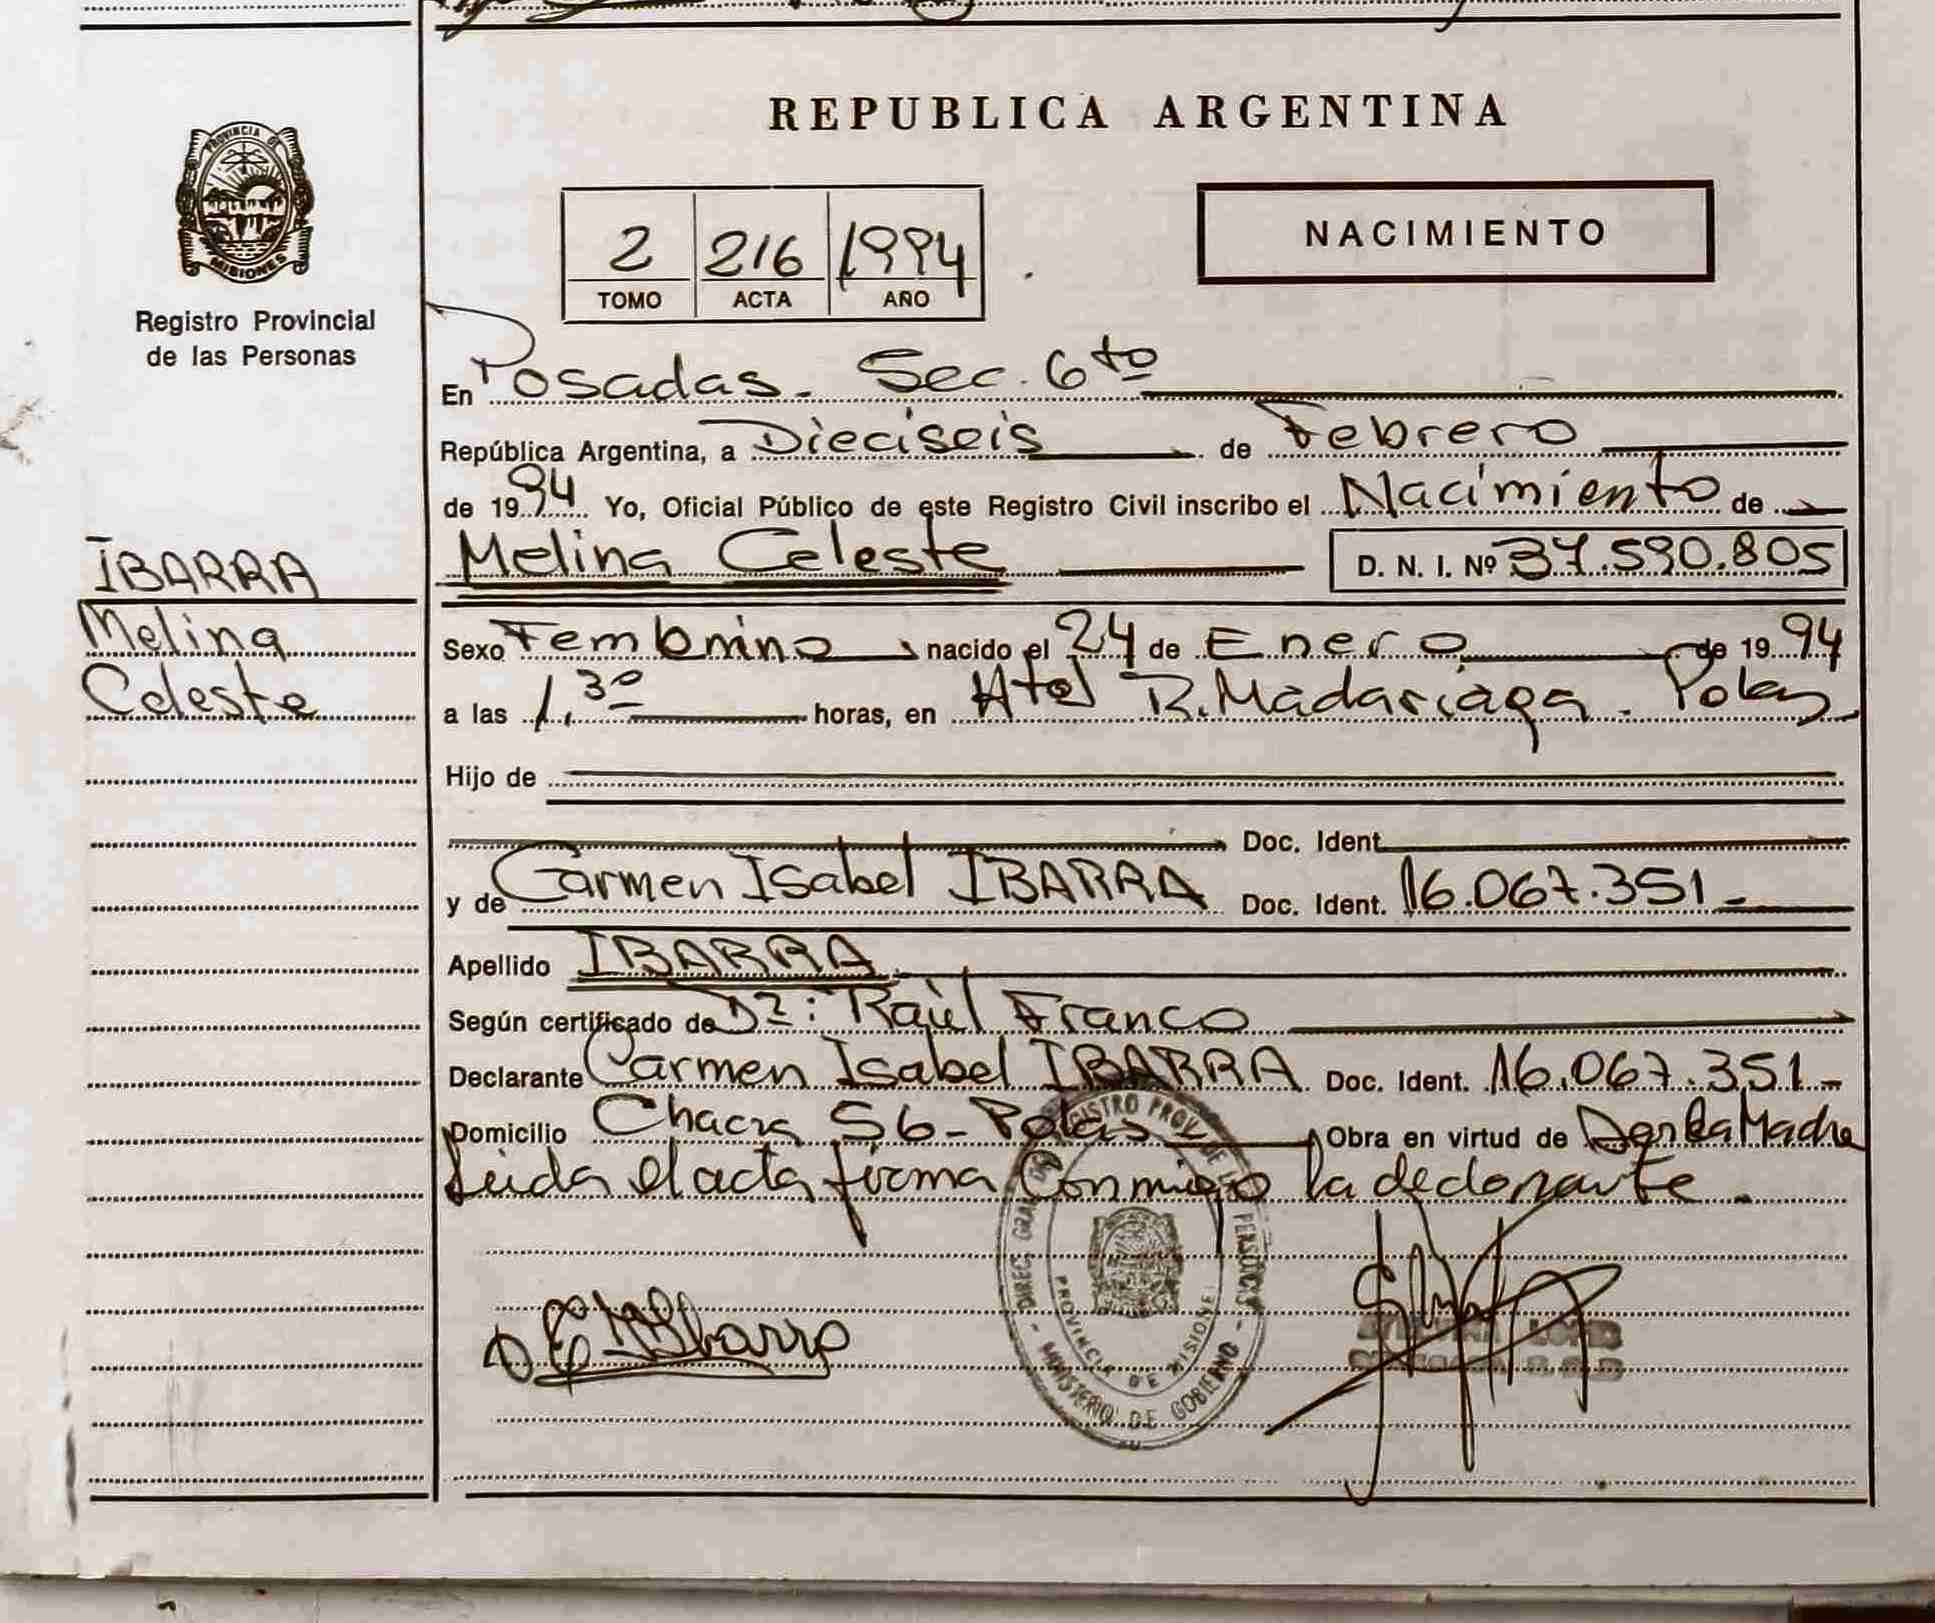 PROVINCIA DE
MISIONES
Registro Provincial
de las Personas
REPUBLICA ARGENTINA
2 216 1994
TOMO ACTA AÑO
NACIMIENTO
En Posadas - Sec. 6to
República Argentina, a Dieciseis de Febrero
de 1994 Yo, Oficial Público de este Registro Civil inscribo el Nacimiento de
IBARRA
Melina
Celeste
Melina Celeste D. N. I. Nº 37.590.805
Sexo nacido el 24 de Enero de 1994
a las 1,30 horas, en R. Madariaga -
Hijo de
Doc. Ident.
y de Carmen Isabel IBARRA Doc. Ident. 16.067.351 -
Apellido IBARRA
Según certificado de Dr: Raúl Franco
Declarante Carmen Isabel IBARRA Doc. Ident. 16.067.351 -
Domicilio Chacra 56 - Obra en virtud de Madre
Leida el acta firma Conmigo la declarante.
Ibarra
PROVINCIA DE MISIONES
MINISTERIO DE GOBIERNO